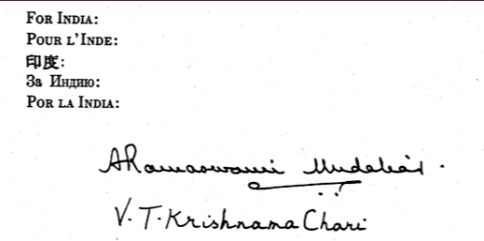 For India:
Pour l'Inde:
印度:
За Индию:
Por la India:
A Ramaswami Mudaliar.
V. T. Krishnama Chari